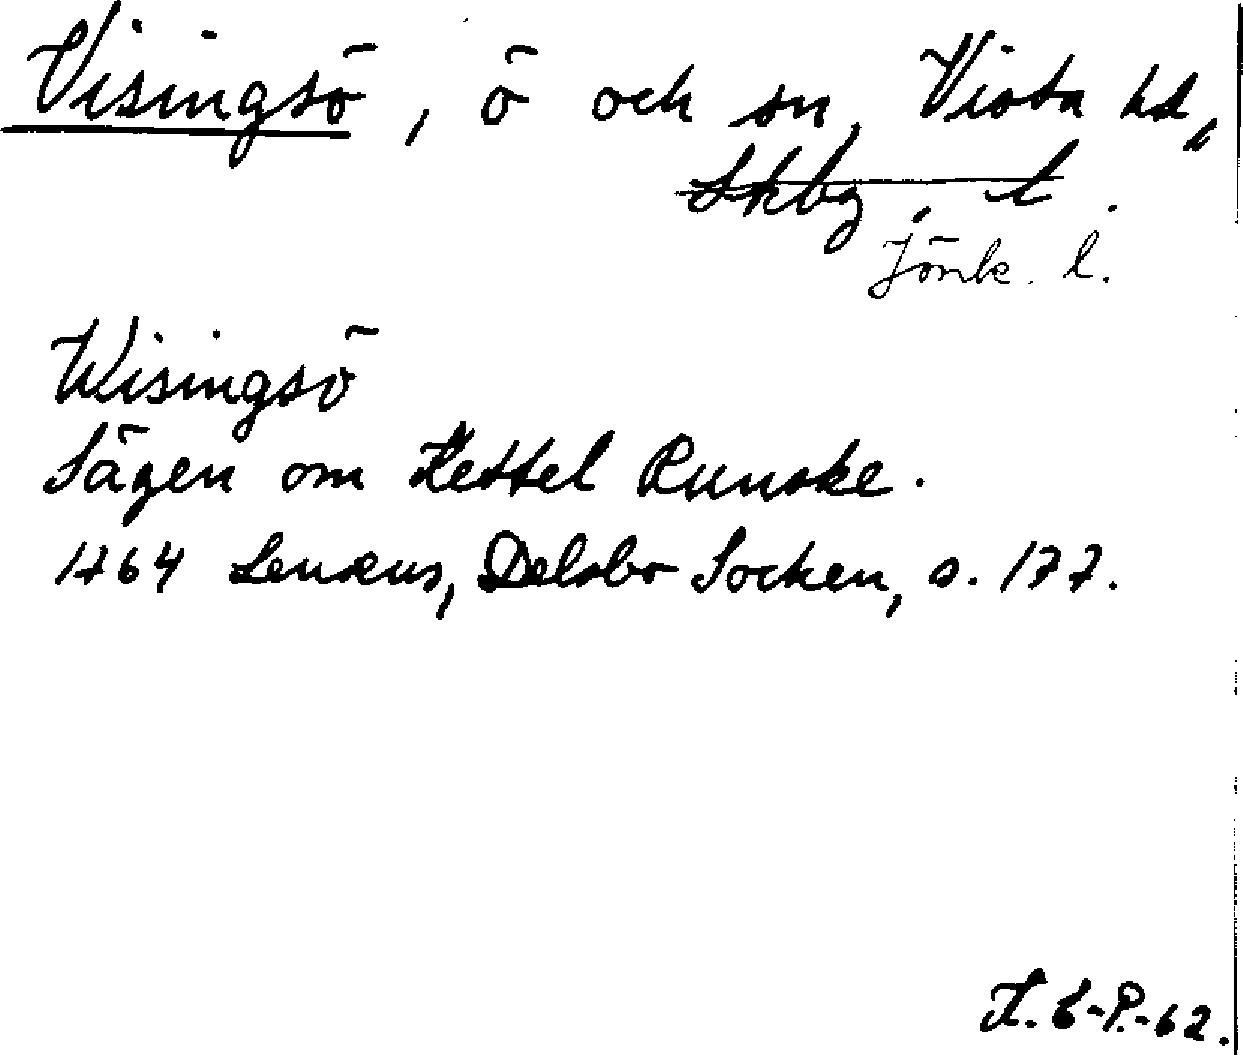 Visingsö, ö och sn, Vista hd,
Skbg. l.
Jönk. l.
Wisingsö
Sägen om Kettel Runske.
1764 Lenæus, Delsbo Socken, s. 177.